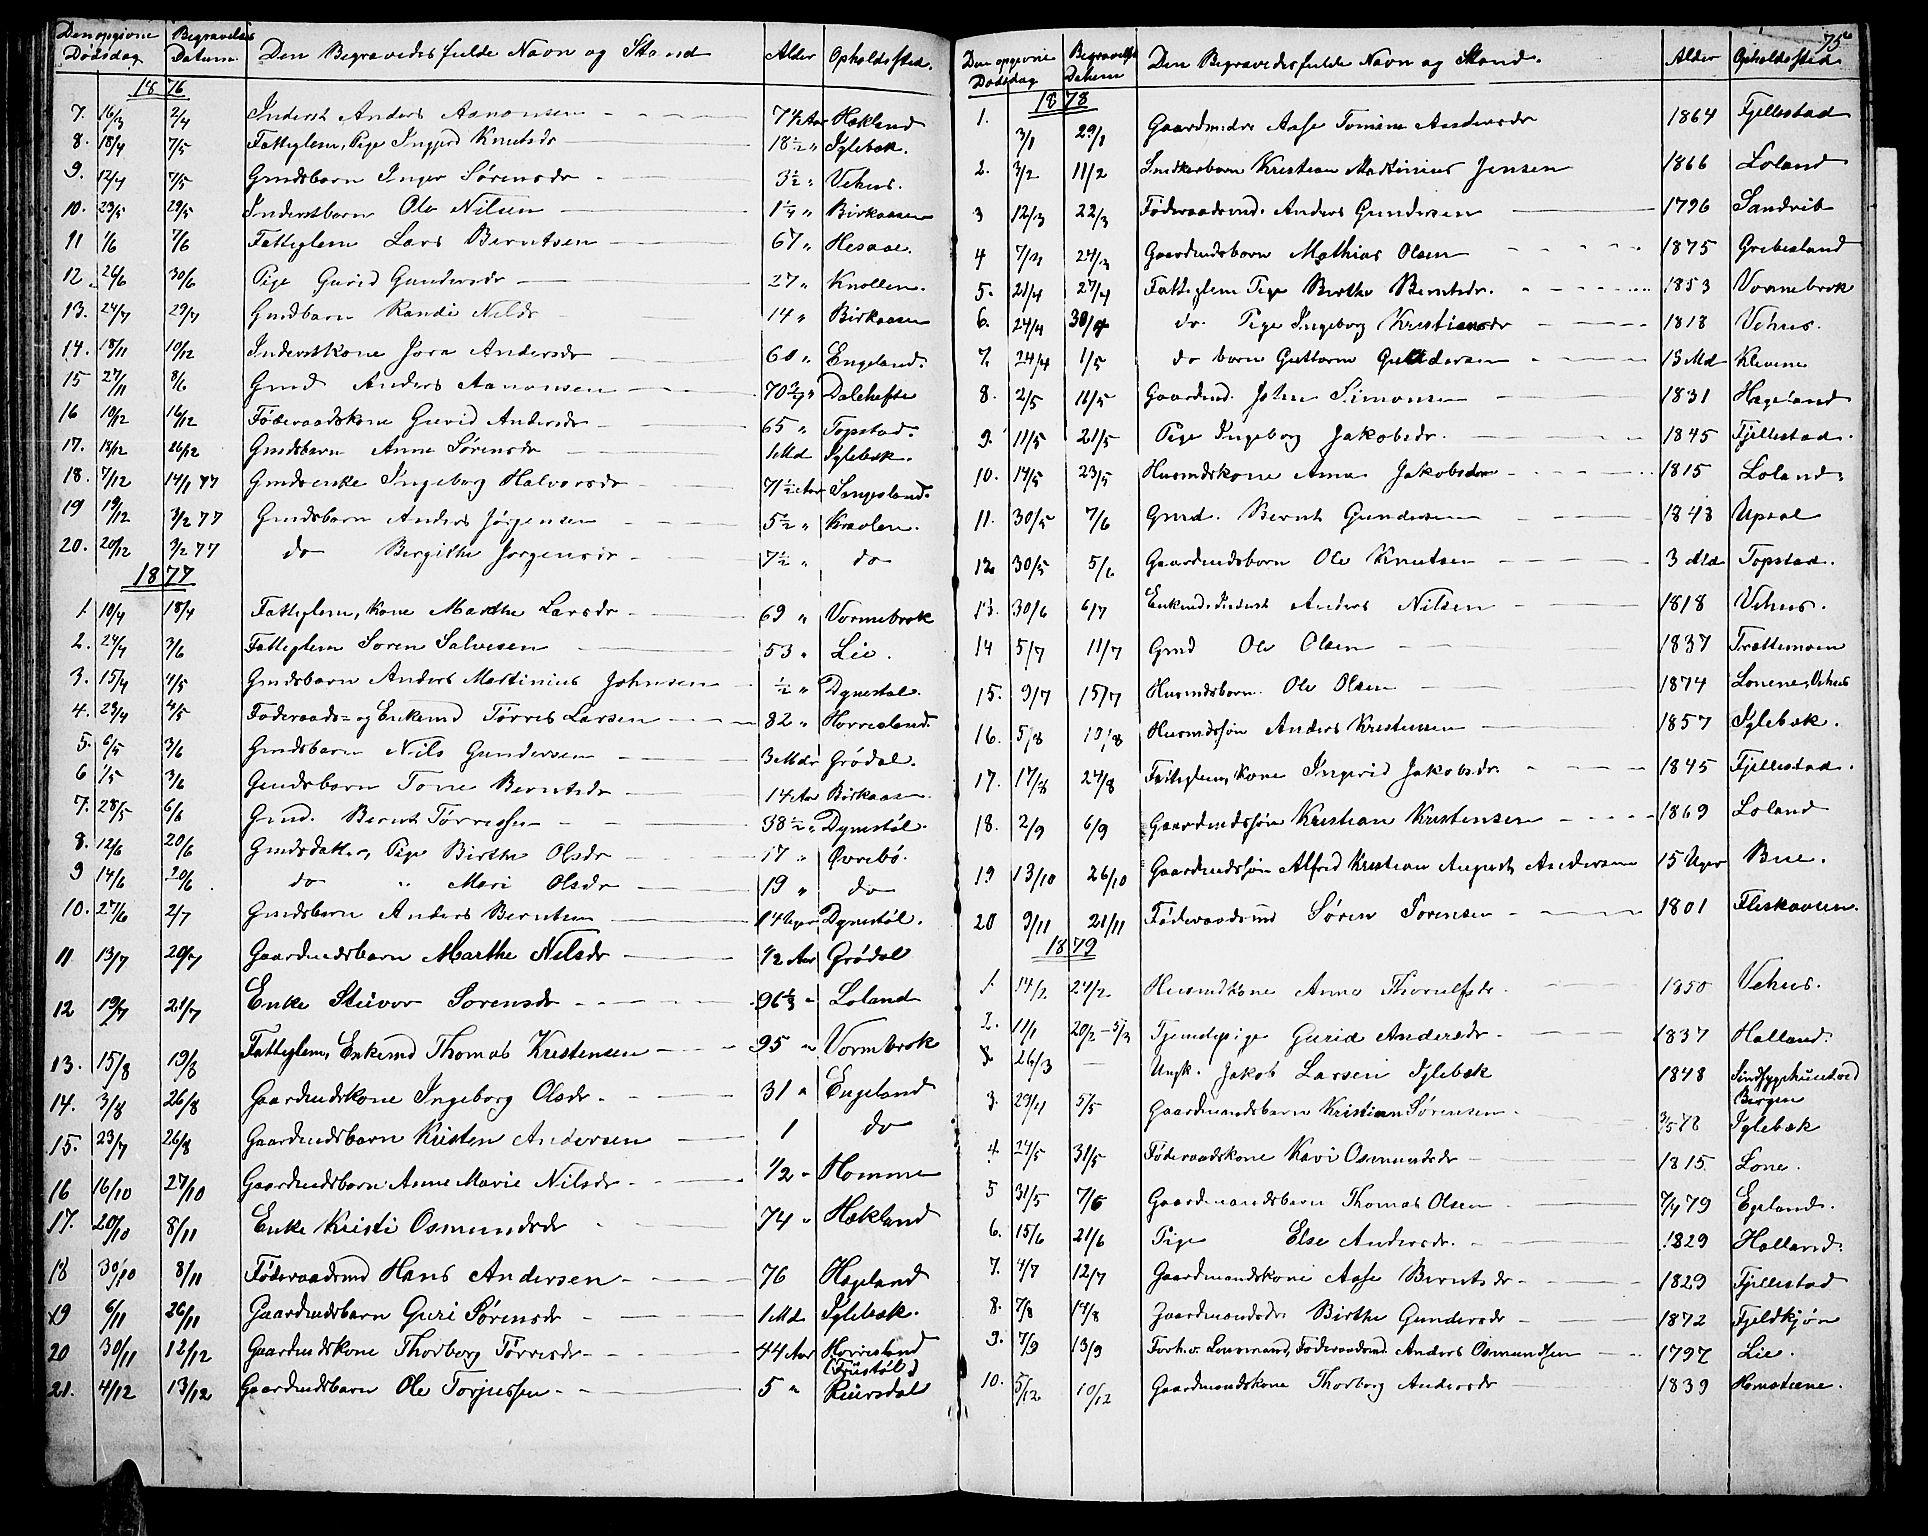 Den opgivne Dødsdag Begravelses Datum Den Begravedes fulde Navn og Stand Alder Opholdssted.
1876
7. 16/3 2/4 Inderst Anders Aanonsen 74 Aar Hækland
8. 18/4 7/5 Fattiglem, Pige Ingjerd Knutsdr 18½ " Iglebæk.
9. 12/4 7/5 Gmdsbarn Inger Sørensdr 3½ " Vehus.
10. 23/5 29/5 Inderstbarn Ole Nilsen 1¼ " Birkaasen
11 1/6 7/6 Fattiglem Lars Berntsen 67 " Hesaae.
12 26/6 30/6 Pige Gurid Gundersdr 27 " Knollen.
13. 24/7 29/7 Gmdbarn Randi Nilsdr 14 " Birkaasen
14. 18/11 10/12 Inderstkone Jora Andersdr 60 " Engeland.
15 27/11 8/6 Gmd Anders Aanonsen 70 " Dalehefte
16 10/12 16/12 Føderaadskone Gurid Andersdr 65 " Topstad.
17. 18/12 26/12 Gmdsbarn Anne Sørensdr 1 Md Iglebæk.
18. 7/12 14/1 77 Gmdsenke Ingeborg Halvorsdr 71½ Aar Songesland.
19 19/12 3/2 77 Gmdsbarn Anders Jørgensen 5½ " Kraolen.
20. 20/12 3/2 77 do Bergithe Jørgensdr 7½ " do
1877
1. 10/4 18/4 Fattiglem, Kone Marthe Larsdr 69 " Vormebrok
2. 24/4 3/6 Fattiglem Soren Salvesen 53 " Lie.
3. 15/4 4/5 Gmdsbarn Anders Martinius Johnsen ½ " Dynestøl.
4. 23/4 4/5 Føderaads= og Enkemd Tørres Larsen 82 " Horresland.
5. 6/5 3/6 Gmdsbarn Nils Gundersen 3 Mdr Grødal.
6 1/5 3/6 Gmdsbarn Tone Berntsdr 14 Aar Birkaasen.
7. 28/5 6/6 Gmd. Bernt Tørressen 38½ " Dynestøl.
8. 12/6 20/6 Gmdsdatter, Pige Birthe Olsdr 17 " Øvrebø.
9 14/6 20/6 do " Mari Olsdr 19 " do
10. 27/6 2/7 Gmdsbarn Anders Berntsen 14 Uger Dynestøl.
11 13/7 20/7 Gaardmdsbarn Marthe Nilsdr 1/2 Aar Grødal
12 19/7 21/7 Enke Stuvor Sorensdr 96⅓ " Loland
13. 15/8 19/8 Fattiglem, Enkemd Thomas Kristensen 95 " Vormbrok
14. 3/8 26/8 Gaardmdskone Ingeborg Olsdr 31 " Engeland
15. 23/7 26/8 Gaardmdsbarn Kristen Andersen 1 do
16 16/10 27/10 Gaardmdsbarn Anne Marie Nilsdr 1/2 " Homme
17. 20/10 8/11 Enke Kristi Osmundsdr 74 " Hækland
18 30/10 8/11 Føderaadmd Hans Andersen 76 Hægeland
19 6/11 26/11 Gaardmdsbarn Guri Sørensdr 1 Md Iglebæk.
20 30/11 12/12 Gaardmdskone Thorborg Tørresdr 44 Aar Horresland
21. 4/12 13/12 Gaardmdsbarn Ole Torjussen 5 " Reiersdal
75
Den opgivne Dødsdag Begravelses Datum Den Begravedes fulde Navn og Stand. Alder Opholdssted
1878
1. 3/1 29/1 Gaardmdsdr Aase Tomine Andersdr 1864 Fjellestad
2. 3/2 11/2 Kristian Martinius Jensen 1866 Loland
3 12/3 22/3 Føderaadsmd. Anders Gundersen 1796 Sandrib
4 24/3 Gaardmdsbarn Mathias Olsen 1875 Grebesland
5. 21/4 27/4 Fattiglem Pige Birthe Berntsdr. 1853 Vormebrok
6. 24/4 30/4 do. Pige Ingeborg Kristiansdr 1818 Vehus.
7. 24/4 1/5 do barn Guttorm Gundersen 13 Md Klevene
8. 2/5 11/5 Gaardmd. John Simonsen 1831 Hægeland
9. 11/5 21/5 Pige Ingeborg Jakobsdr. 1845 Fjellestad.
10. 14/5 23/5 Husmdskone Anna Jakobsdr 1815 Loland.
11. 30/5 7/6 Gmd. Bernt Gundersen 1843 Upsal
12 30/5 5/6 Gaardmdsbarn Ole Knutsen 3 Md Topstad.
13. 30/6 6/7 Enkemd. Inderst Anders Nilsen 1818 Vehus.
14 5/7 11/7 Gmd Ole Olsen 1837 Trættemoen
15. 9/7 15/7 Husmdsbarn. Ole Olsen 1874 Lonene, Vehus
16. 5/8 19/8 Husmdssøn Anders Kristensen 1857 Iglebæk.
17. 17/8 24/8 Fattiglem, Kone Ingerid Jakobsdr. 1845 Fjellestad.
18. 2/9 6/9 Gaardmdssøn Kristian Kristensen 1869 Loland
19 13/10 26/10 Gaardmdssøn Alfred Kristian August Andersen 15 Uger Bue.
20 9/11 21/11 Føderaadsmd Søren Sorensen 1801 Fliskaasen.
1879
1. 14/2 24/2 Husmdkone Anne Thorulfsdr. 1850 Vehus.
2. 11/1 20/2 - 5/3 Tjenstepige Gurid Andersdr. 1837 Holland.
26/3 Ungk. Jakob Larsen Iglebæk 1848 Sindssygehuset ved Bergen
3. 29/4 5/5 Gaardmandsbarn Kristian Sørensen 3/5 78 Iglebæk
4. 24/5 31/5 Føderaadskone Kari Osmundsdr 1815 Lone.
5 31/5 7/6 Gaardmandsbarn Thomas Olsen 7/4 79 Egeland.
6. 15/6 21/6 Pige Else Andersdr. 1829 Holland.
7. 4/7 12/7 Gaardmandskone Aase Berntsdr 1829 Fjellestad
8. 7/8 14/8 Gaardmandsdr Birthe Gundersdr 1872 Fjeldkjøn
9. 7/9 13/9 Forh.v. Lensmand, Føderaadsmd. Anders Osmundsen 1797 Lie.
10. 5/12 10/12 Gaardmandskone Thorborg Andersdr 1839 Homstiene.